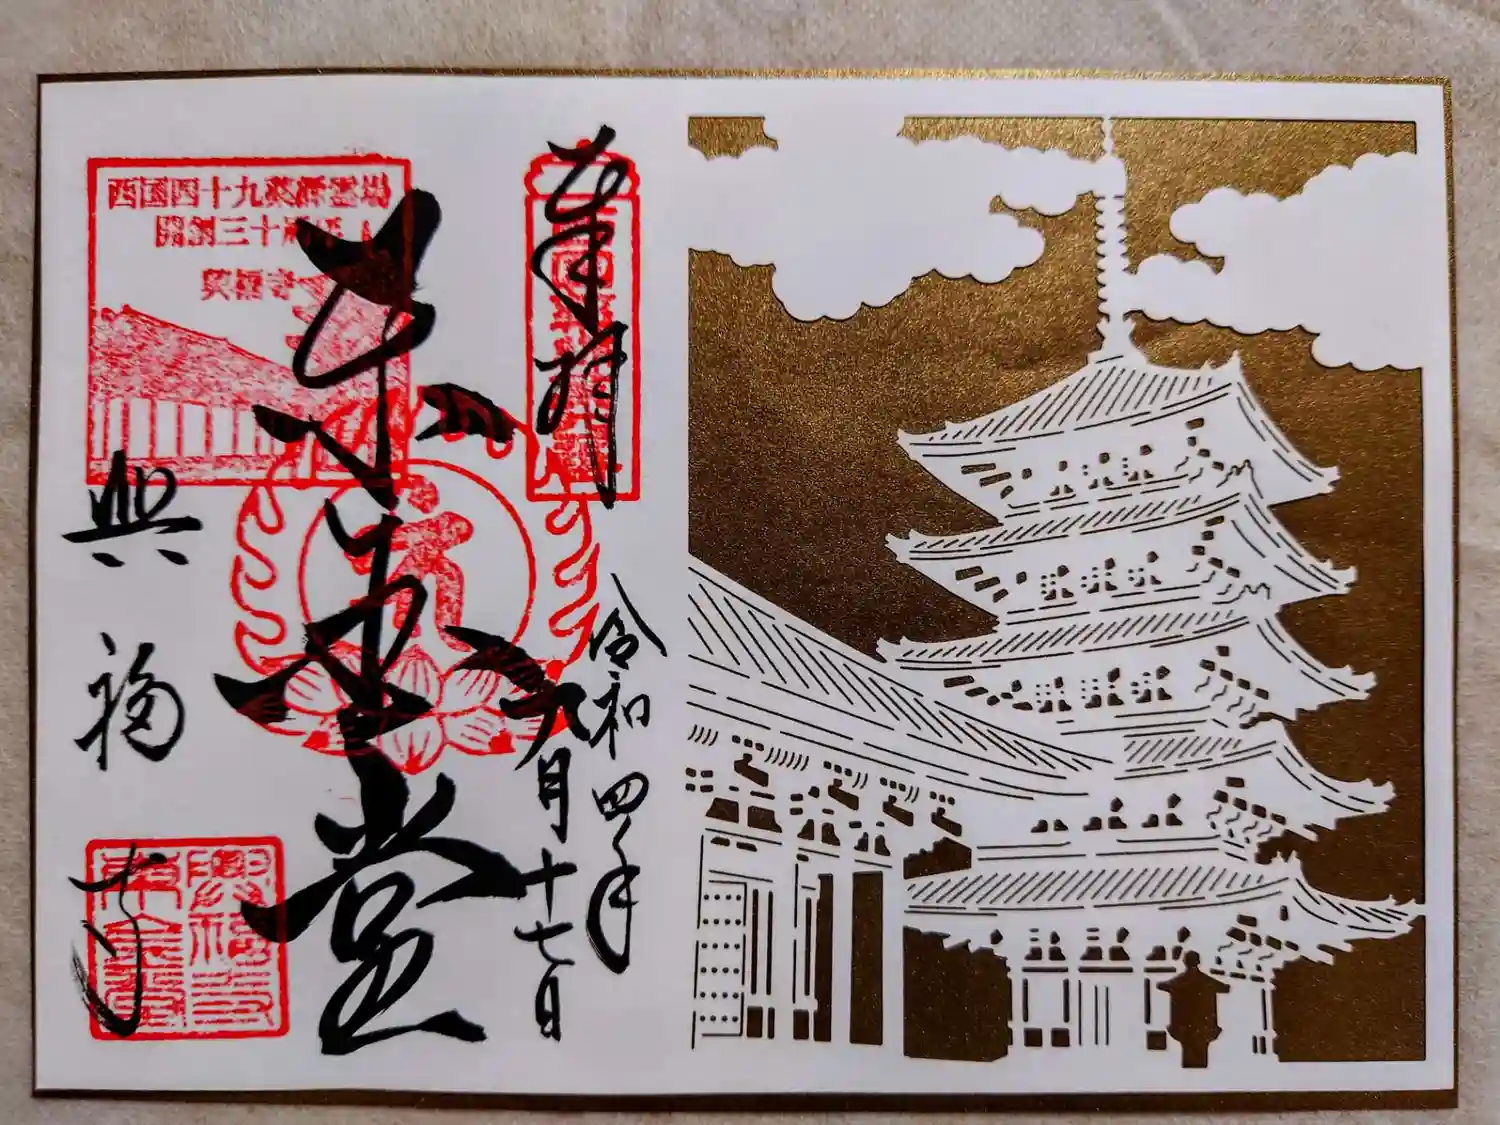 奉拝
令和四年
月十七日
東金堂
西国四十九薬師霊場
開創三十周年
興福寺
興福寺
興福寺
東金堂